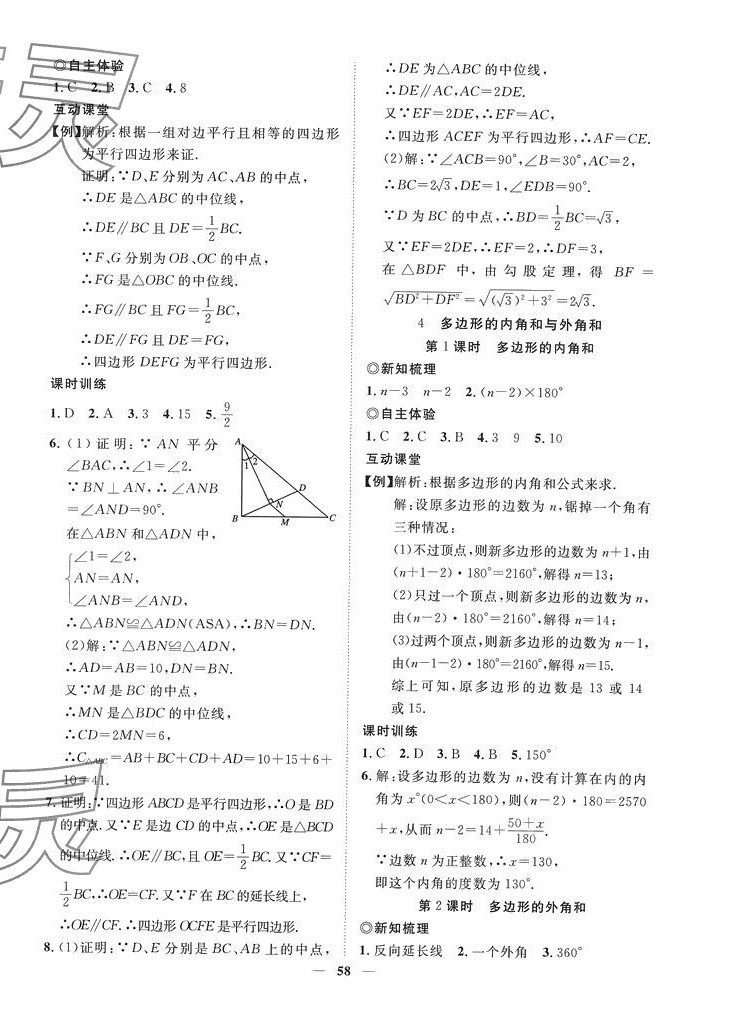 ◎自主体验
1. C  2. B  3. C  4. 8
互动课堂
【例】解析:根据一组对边平行且相等的四边形
为平行四边形来证.
证明:∵D、E 分别为 AC、AB 的中点,
∴DE 是△ABC 的中位线.
∴DE∥BC 且 DE=1/2BC.
∵F、G 分别为 OB、OC 的中点,
∴FG 是△OBC 的中位线.
∴FG∥BC 且 FG=1/2BC,
∴DE∥FG 且 DE=FG.
∴四边形 DEFG 为平行四边形.
课时训练
1. D  2. A  3. 3  4. 15  5. 9/2
6. (1)证明:∵AN 平分
∠BAC,∴∠1=∠2.
∵BN⊥AN,∴∠ANB
=∠AND=90°.
在△ABN 和△ADN 中,
{∠1=∠2,
AN=AN,
∠ANB=∠AND,
∴△ABN≌△ADN(ASA),∴BN=DN.
(2)解:∵△ABN≌△ADN,
∴AD=AB=10,DN=BN.
又∵M 是 BC 的中点,
∴MN 是△BDC 的中位线,
∴CD=2MN=6,
∴C△ABC=AB+BC+CD+AD=10+15+6+
10=41.
A
1 2
D
N
B M C
7. 证明:∵四边形 ABCD 是平行四边形,∴O 是 BD
的中点.又∵E 是边 CD 的中点,∴OE 是△BCD
的中位线.∴OE∥BC,且 OE=1/2BC.又∵CF=
1/2BC,∴OE=CF.又∵F 在 BC 的延长线上,
∴OE∥CF.∴四边形 OCFE 是平行四边形.
8. (1)证明:∵D、E 分别是 BC、AB 上的中点,
∴DE 为△ABC 的中位线,
∴DE∥AC,AC=2DE.
又∵EF=2DE,∴EF=AC,
∴四边形 ACEF 为平行四边形,∴AF=CE.
(2)解:∵∠ACB=90°,∠B=30°,AC=2,
∴BC=2√3,DE=1,∠EDB=90°.
∵D 为 BC 的中点,∴BD=1/2BC=√3,
又∵EF=2DE,∴EF=2,∴DF=3,
在△BDF 中,由勾股定理,得 BF=
√(BD²+DF²)=√((√3)²+3²)=2√3.
4  多边形的内角和与外角和
第 1 课时  多边形的内角和
◎新知梳理
1. n-3  n-2  2. (n-2)×180°
◎自主体验
1. C  2. C  3. B  4. 3  9  5. 10
互动课堂
【例】解析:根据多边形的内角和公式来求.
解:设原多边形的边数为 n,锯掉一个角有
三种情况:
(1)不过顶点,则新多边形的边数为 n+1,由
(n+1-2)·180°=2160°,解得 n=13;
(2)只过一个顶点,则新多边形的边数为 n,
由(n-2)·180°=2160°,解得 n=14;
(3)过两个顶点,则新多边形的边数为 n-1,
由(n-1-2)·180°=2160°,解得 n=15.
综上可知,原多边形的边数是 13 或 14
或 15.
课时训练
1. C  2. D  3. B  4. B  5. 150°
6. 解:设多边形的边数为 n,没有计算在内的内
角为 x°(0<x<180),则(n-2)·180=2570
+x,从而 n-2=14+(50+x)/180.
∵边数 n 为正整数,∴x=130,
即这个内角的度数为 130°.
第 2 课时  多边形的外角和
◎新知梳理
1. 反向延长线  2. 一个外角  3. 360°
— 58 —
灵
灵